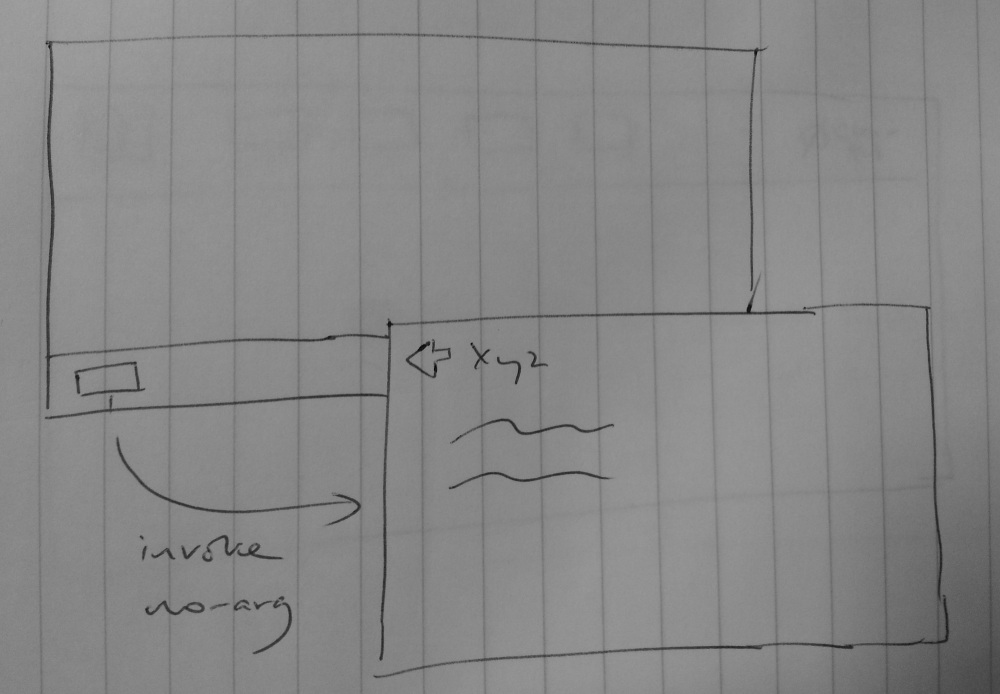 Xyz
invoke
no-arg